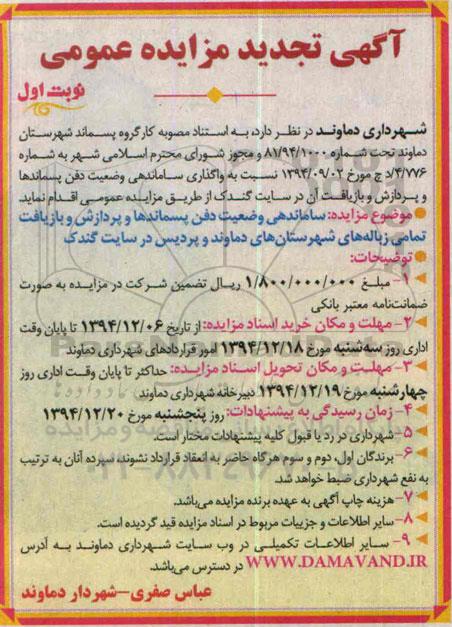 آگهی تجدید مزایده عمومی
نوبت اول
شهرداری دماوند در نظر دارد، به استناد مصوبه کارگروه پسماند شهرستان
دماوند تحت شماره ۸۱/۹۴/۱۰۰۰ و مجوز شورای محترم اسلامی شهر به شماره
۴/۷۷۶/د ج مورخ ۱۳۹۴/۰۹/۰۲ نسبت به واگذاری ساماندهی وضعیت دفن پسماندها
و پردازش و بازیافت آن در سایت گندک از طریق مزایده عمومی اقدام نماید.
موضوع مزایده: ساماندهی وضعیت دفن پسماندها و پردازش و بازیافت
تمامی زباله‌های شهرستان‌های دماوند و پردیس در سایت گندک
توضیحات:
۱- مبلغ ۱/۸۰۰/۰۰۰/۰۰۰ ریال تضمین شرکت در مزایده به صورت
ضمانت‌نامه معتبر بانکی
۲- مهلت و مکان خرید اسناد مزایده: از تاریخ ۱۳۹۴/۱۲/۰۶ تا پایان وقت
اداری روز سه‌شنبه مورخ ۱۳۹۴/۱۲/۱۸ امور قراردادهای شهرداری دماوند
۳- مهلت و مکان تحویل اسناد مزایده: حداکثر تا پایان وقت اداری روز
چهارشنبه مورخ ۱۳۹۴/۱۲/۱۹ دبیرخانه شهرداری دماوند
۴- زمان رسیدگی به پیشنهادات: روز پنجشنبه مورخ ۱۳۹۴/۱۲/۲۰
۵- شهرداری در رد یا قبول کلیه پیشنهادات مختار است.
۶- برندگان اول، دوم و سوم هرگاه حاضر به انعقاد قرارداد نشوند، سپرده آنان به ترتیب
به نفع شهرداری ضبط خواهد شد.
۷- هزینه چاپ آگهی به عهده برنده مزایده می‌باشد.
۸- سایر اطلاعات و جزییات مربوط در اسناد مزایده قید گردیده است.
۹- سایر اطلاعات تکمیلی در وب سایت شهرداری دماوند به آدرس
WWW.DAMAVAND.IR در دسترس می‌باشد.
عباس صفری-شهردار دماوند